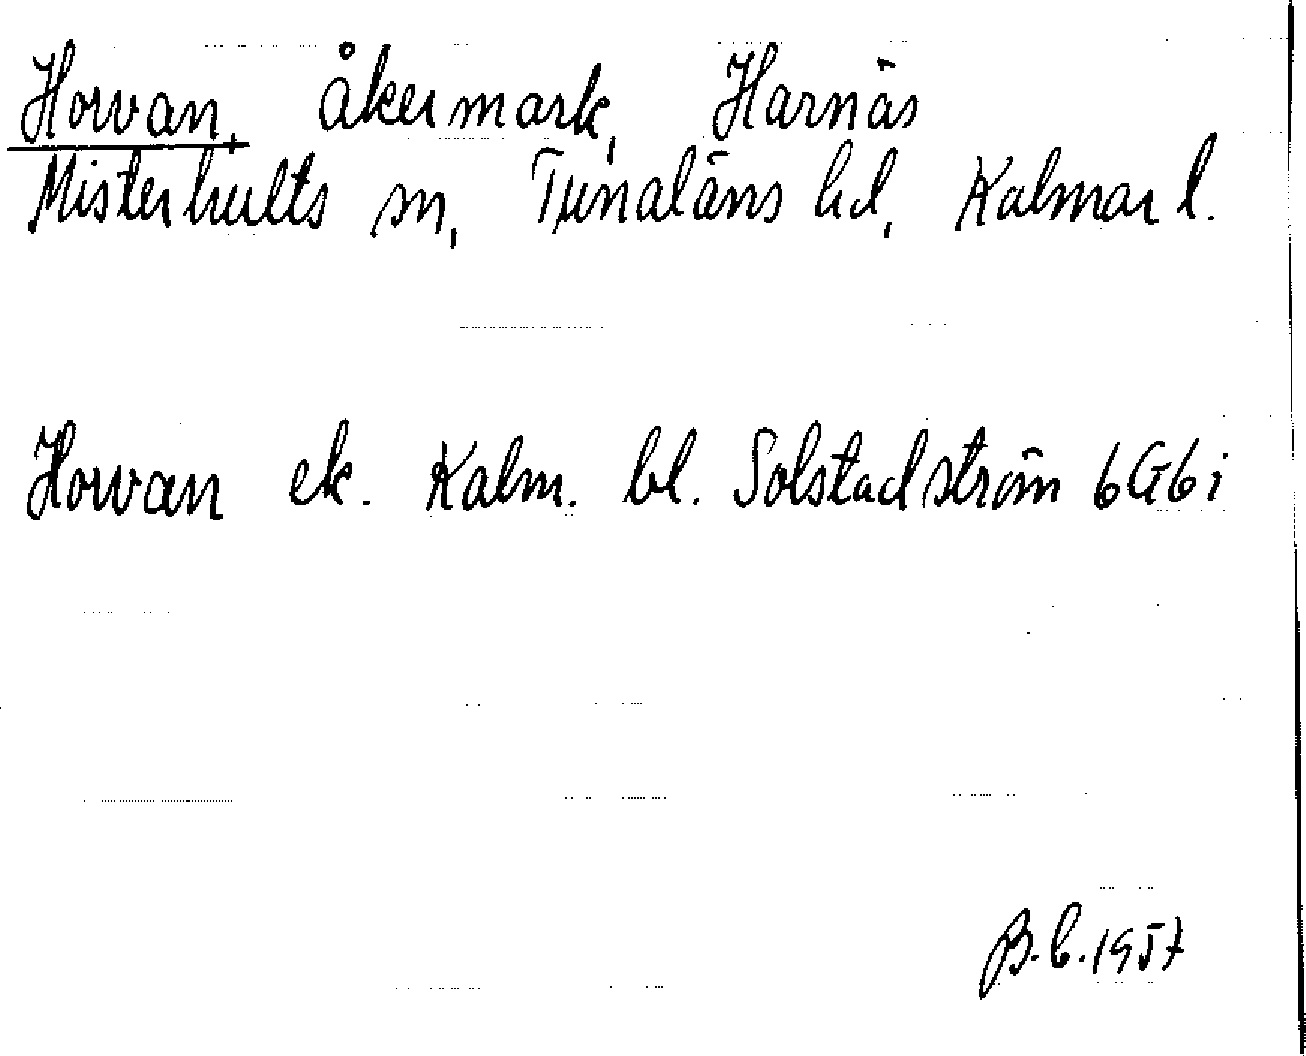 Horvan, åkermark, Harnäs
Misterhults sn, Tunaläns hd, Kalmar l.
Horvan ek. Kalm. bl. Solstadström 6G6i
B.C. 1957